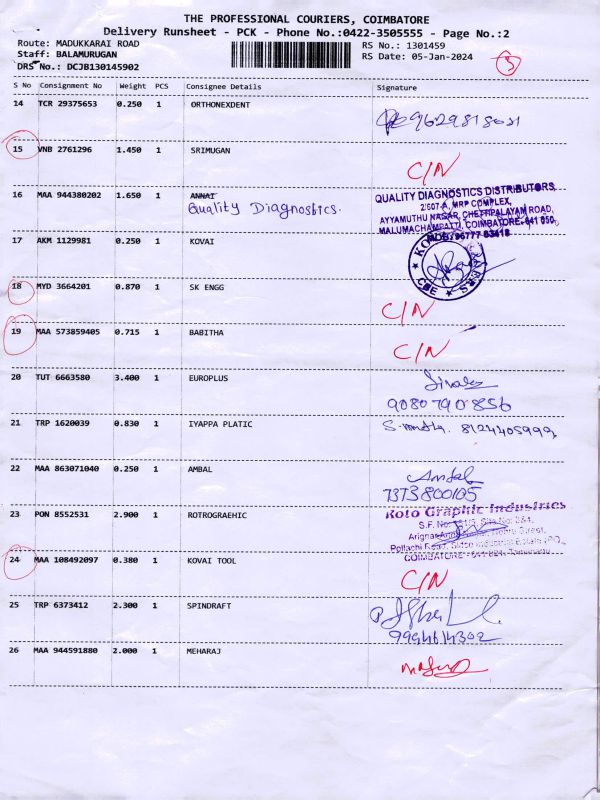 THE PROFESSIONAL COURIERS, COIMBATORE
Delivery Runsheet - PCK - Phone No.:0422-3505555 - Page No.:2
Route: MADUKKARAI ROAD
RS No.: 1301459
Staff: BALAMURUGAN
RS Date: 05-Jan-2024
DRS No.: DCJB130145902
5
S No Consignment No Weight PCS Consignee Details Signature
14 TCR 29375653 0.250 1 ORTHONEXDENT
9629818031
15 VNB 2761296 1.450 1 SRIMUGAN
C/N
16 MAA 944380202 1.650 1 ANNAI
Quality Diagnostics.
QUALITY DIAGNOSTICS DISTRIBUTORS,
2/607-A, MRP COMPLEX,
AYYAMUTHU NAGAR, CHETTIPALAYAM ROAD,
MALUMACHAMPATTI, COIMBATORE-641 050.
MOB: 96777 63418
17 AKM 1129981 0.250 1 KOVAI
CBE
18 MYD 3664201 0.870 1 SK ENGG
C/N
19 MAA 573859405 0.715 1 BABITHA
C/N
20 TUT 6663580 3.400 1 EUROPLUS
9080790856
21 TRP 1620039 0.830 1 IYAPPA PLATIC
8124405999
22 MAA 863071040 0.250 1 AMBAL
Ambal
7373800105
23 PON 8552531 2.900 1 ROTROGRAEHIC
Roto Graphic Industries
24 MAA 108492097 0.380 1 KOVAI TOOL
C/N
25 TRP 6373412 2.300 1 SPINDRAFT
9994614302
26 MAA 944591880 2.000 1 MEHARAJ